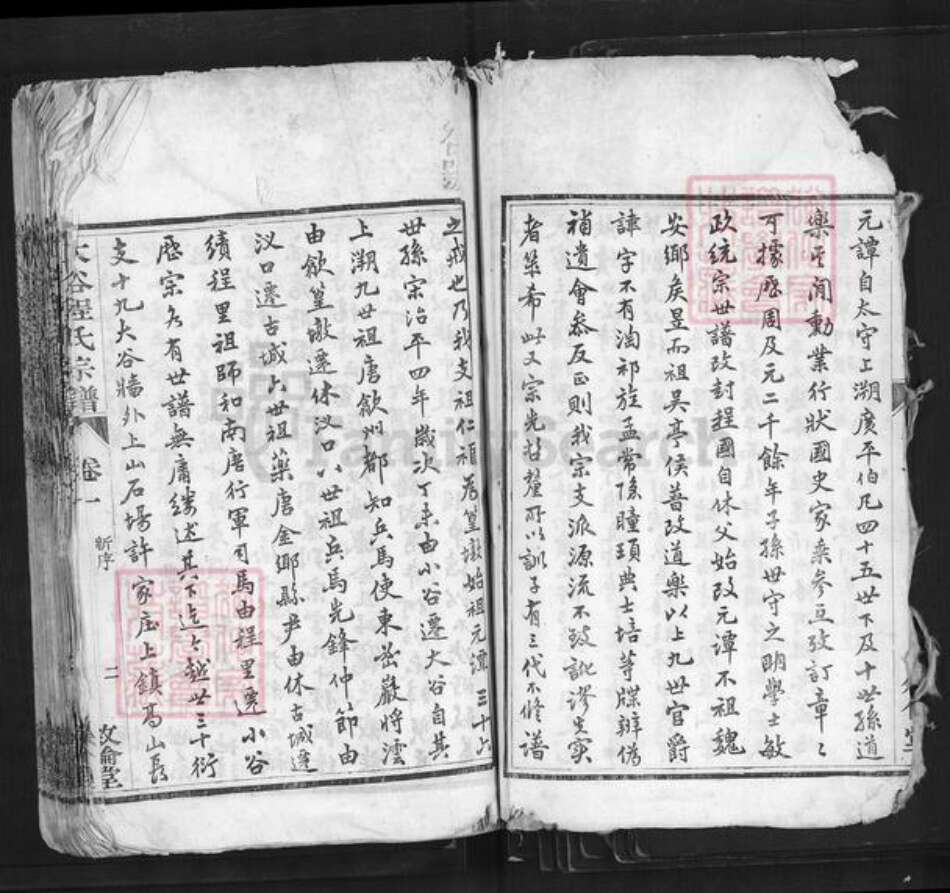 元譚自太守上溯廣平伯凡四十五世下及十世孫道
樂其間勳業行狀國史家乘參互攷訂章〻
可據歷周及元二千餘年子孫世守之明學士敏
政統宗世譜改封程國自休父始改元譚不祖魏
安鄉矦昱而祖吳亭侯普改道樂以上九世官爵
諱字不有渤祁旋孟常隱瞳頊典士培等牒辯偽
補遺會叅反正則我宗支派源流不致訛謬失實
者策希此又宗先哲釐所以訓子有三代不修譜
之戒也乃我支祖仁福為篁墩始祖元潭三十六
世孫宗治平四年歲次丁未由小谷遷大谷自其
上溯九世祖唐歙州都知兵馬使東密巖將澐
由歙篁墩遷休汊口八世祖兵馬先鋒仲節由
汊口遷古城六世祖藥唐金鄉縣尹由休古城遷
績程里祖師和南唐行軍司馬由程里遷小谷
歷宗久有世譜無庸縷述其下迄今越世三十衍
支十九大谷牆外上山石場許家庄上鎮高山長
大谷程氏宗譜
卷一
新序
二
文會堂
FamilySearch